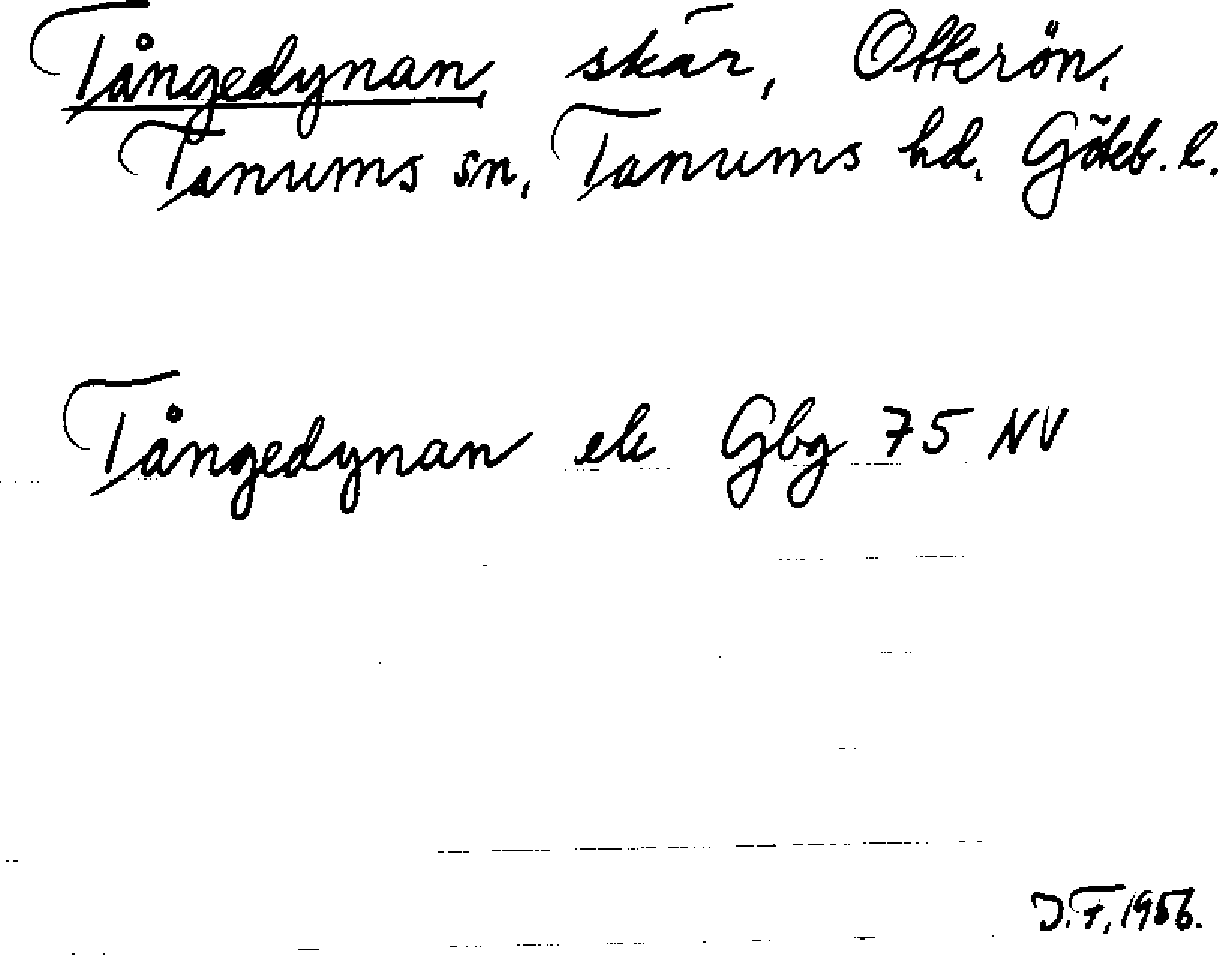 Tångedynan, skär, Otterön,
Tanums sn, Tanums hd. Göteb. l.
Tångedynan ek Gbg 75 NV
J.F. 1956.